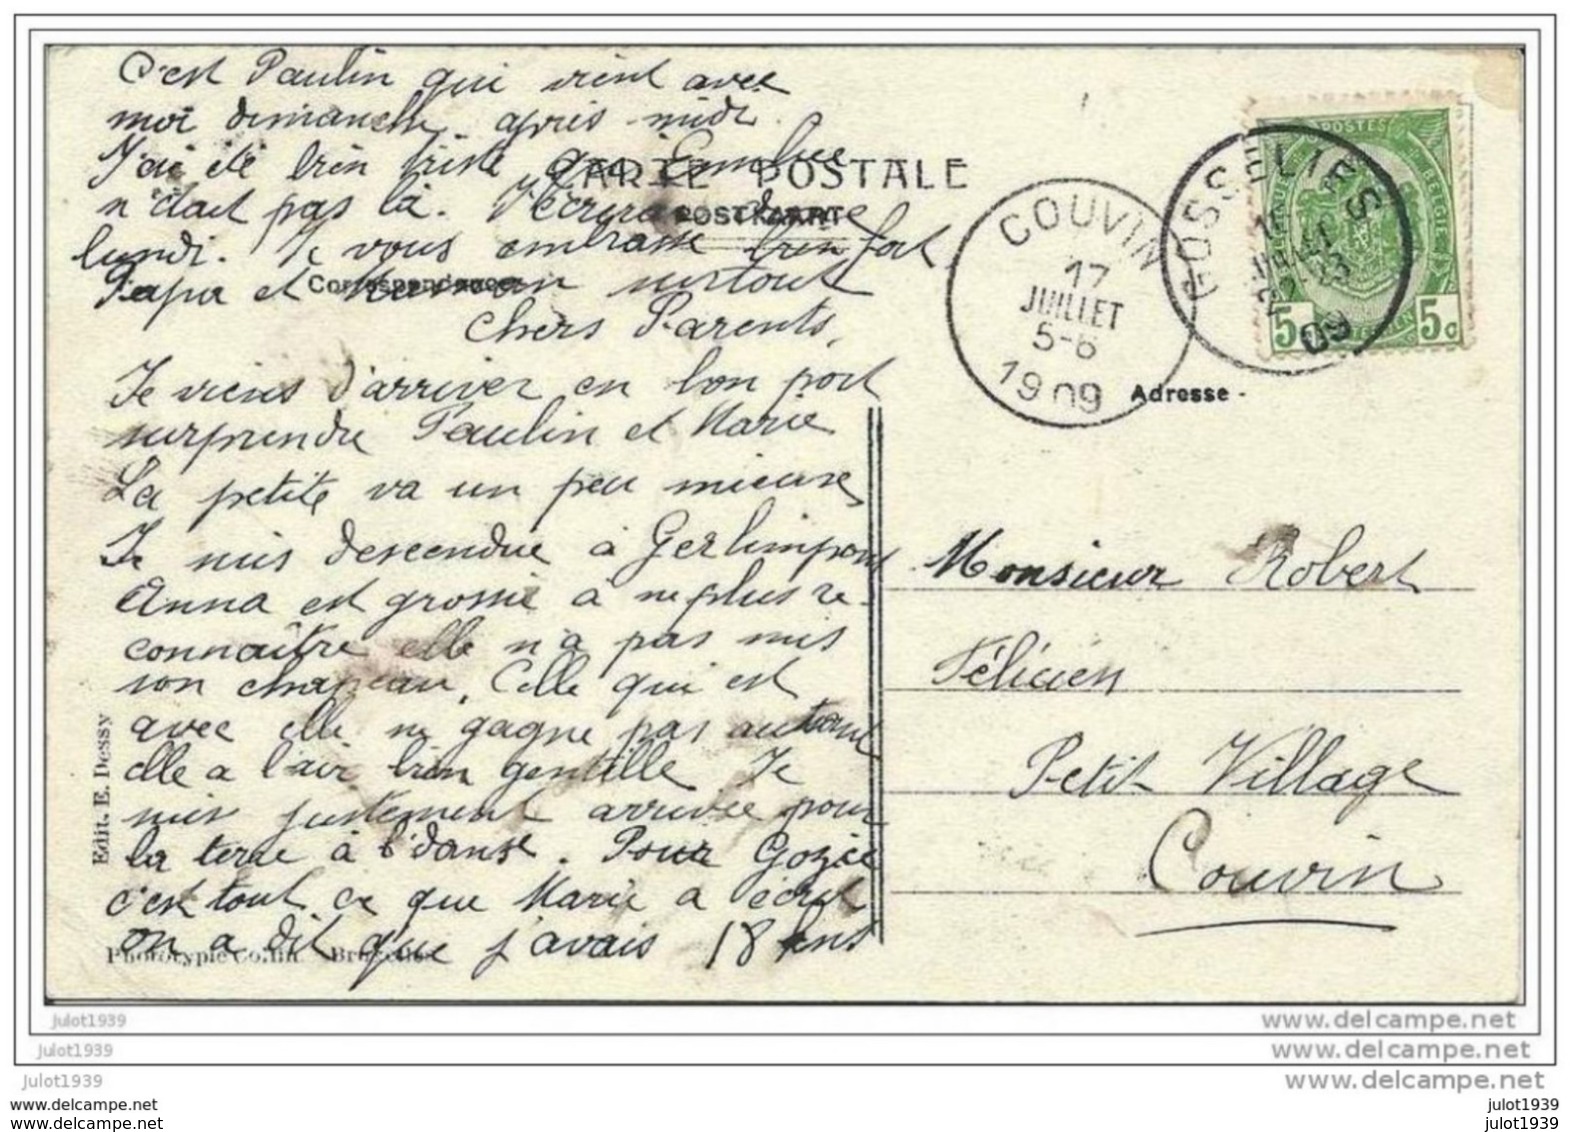 C'est Paulin qui vient avec
moi dimanche après midi
J'ai été bien triste que
n'était pas là. J'écrirai
lundi. Je vous embrasse bien fort
Papa et maman surtout
CARTE POSTALE
POSTKAART
Correspondance
Chers Parents,
Je viens d'arriver en bon port
surprendre Paulin et Marie
La petite va un peu mieux
Je suis descendue à Gerlimpont
Anna est grossie à ne plus re-
connaître elle n'a pas mis
son chapeau, Celle qui est
avec elle ne gagne pas autant
elle a l'air bien gentille Je
suis justement arrivée pour
la terre à l'danse. Pour Gozée
c'est tout ce que Marie a écrit
on a dit que j'avais 18 ans
Edit. E. Dessy
Phototypie Co.lin Bruxelles
COUVIN
17
JUILLET
5-6
1909
GOSSELIES
JUILLET
09
POSTES
BELGIE
5
5c
Adresse -
Monsieur Robert
Félicien
Petit Village
Couvin
julot1939
julot1939
julot1939
www.delcampe.net
www.delcampe.net
www.delcampe.net
www.delcampe.net
www.delcampe.net
julot1939
julot1939